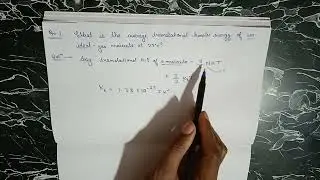 Que-1 What is the average translational kinetic energy of an
ideal-gas molecule at 27°C?
Sol^n:- Avg translational K.E of a molecule - 3/2 NKT
= 3/2 K T
K = 1.38 × 10^-23 J K^-1